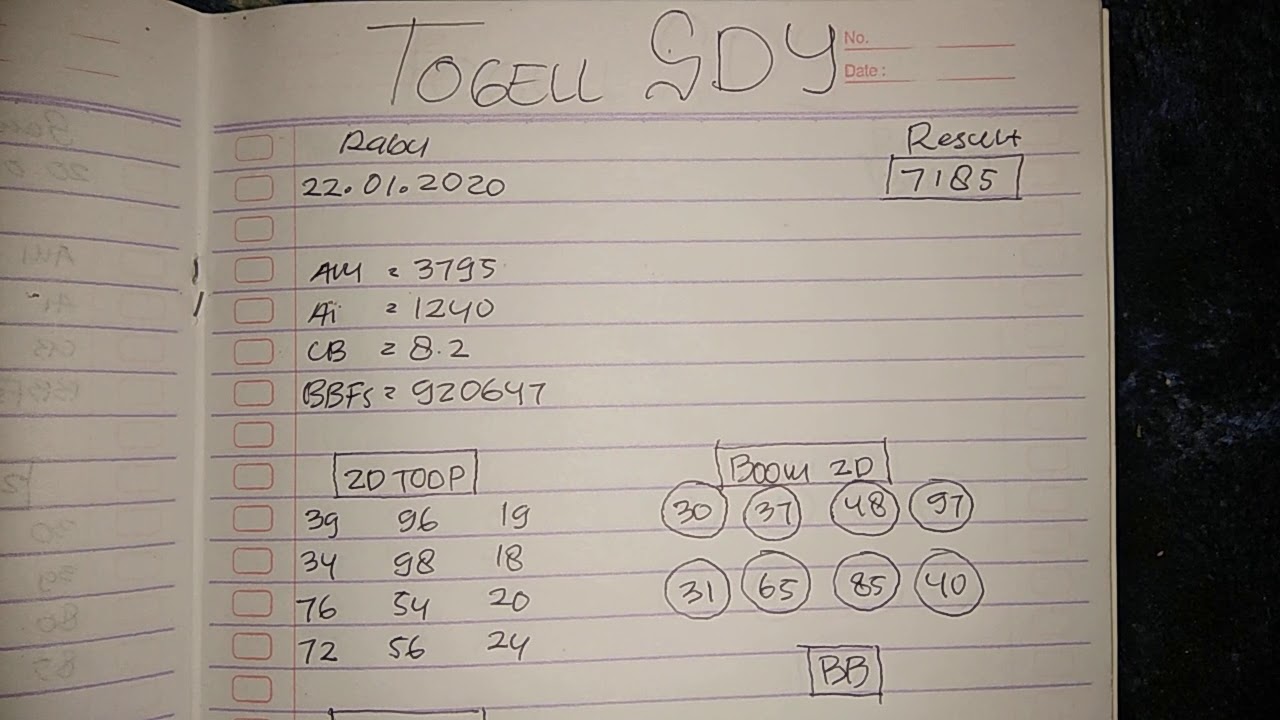 TOGELL SDY
No.
Date :
Rabu
Result
22.01.2020
7185
AM = 3795
Ai = 1240
CB = 8.2
BBFs = 920647
2D TOOP
BOOM 2D
39 96 19
30 37 48 97
34 98 18
76 54 20
31 65 85 40
72 56 24
BB